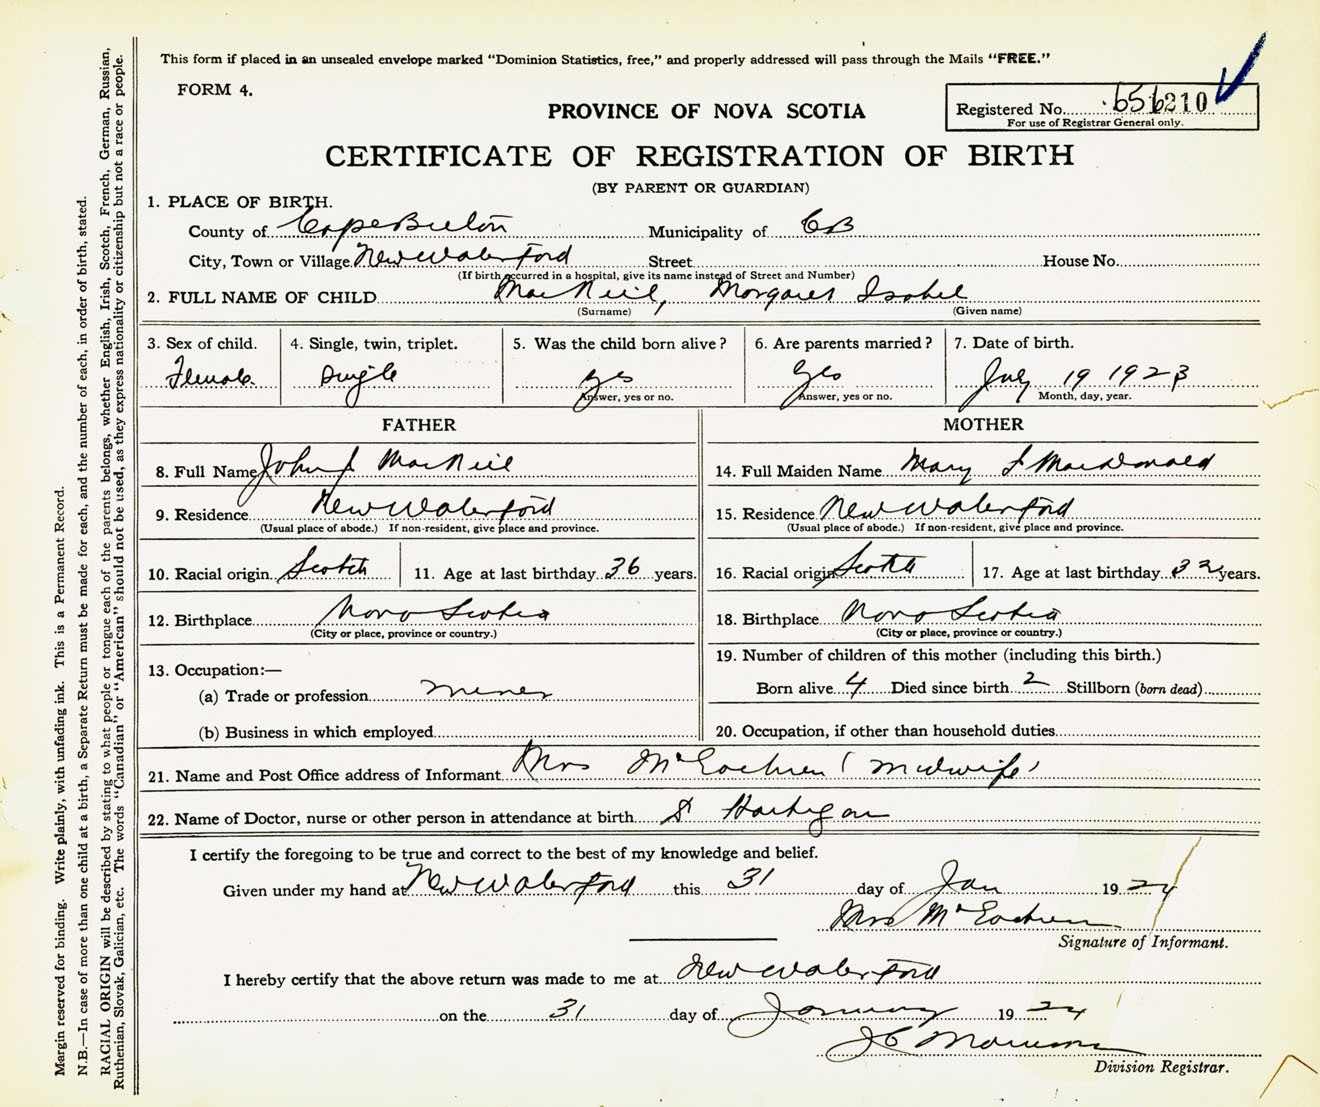 This form if placed in an unsealed envelope marked "Dominion Statistics, free," and properly addressed will pass through the Mails "FREE."
FORM 4.
PROVINCE OF NOVA SCOTIA
Registered No. 656210
For use of Registrar General only.
CERTIFICATE OF REGISTRATION OF BIRTH
(BY PARENT OR GUARDIAN)
1. PLACE OF BIRTH.
County of Cape Breton Municipality of CB
City, Town or Village New Waterford Street House No.
(If birth occurred in a hospital, give its name instead of Street and Number)
2. FULL NAME OF CHILD MacNeil, Margaret Isabel
(Surname) (Given name)
3. Sex of child. 4. Single, twin, triplet. 5. Was the child born alive? 6. Are parents married? 7. Date of birth.
Female single yes yes July 19 1923
Answer, yes or no. Answer, yes or no. Month, day, year.
FATHER MOTHER
8. Full Name John J MacNeil 14. Full Maiden Name Mary J MacDonald
9. Residence New Waterford 15. Residence New Waterford
(Usual place of abode.) If non-resident, give place and province. (Usual place of abode.) If non-resident, give place and province.
10. Racial origin Scotch 11. Age at last birthday 36 years. 16. Racial origin Scotch 17. Age at last birthday 32 years.
12. Birthplace Nova Scotia 18. Birthplace Nova Scotia
(City or place, province or country.) (City or place, province or country.)
13. Occupation:— 19. Number of children of this mother (including this birth.)
(a) Trade or profession miner Born alive 4 Died since birth 2 Stillborn (born dead)
(b) Business in which employed 20. Occupation, if other than household duties
21. Name and Post Office address of Informant Mrs McEachren (Midwife)
22. Name of Doctor, nurse or other person in attendance at birth Hartigan
I certify the foregoing to be true and correct to the best of my knowledge and belief.
Given under my hand at New Waterford this 31 day of Jan 1924
Mrs McEachren
Signature of Informant.
I hereby certify that the above return was made to me at New Waterford
on the 31 day of January 1924
J C Morrison
Division Registrar.
Margin reserved for binding. Write plainly, with unfading ink. This is a Permanent Record.
N.B.—In case of more than one child at a birth, a Separate Return must be made for each, and the number of each, in order of birth, stated.
RACIAL ORIGIN will be described by stating to what people or tongue each of the parents belongs, whether English, Irish, Scotch, French, German, Russian,
Ruthenian, Slovak, Galician, etc. The words "Canadian" or "American" should not be used, as they express nationality or citizenship but not a race or people.